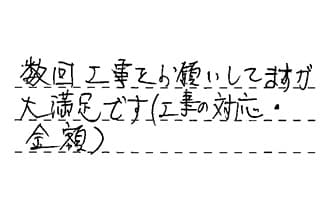 数回工事をお願いしてますが
大満足です(工事の対応・
金額)